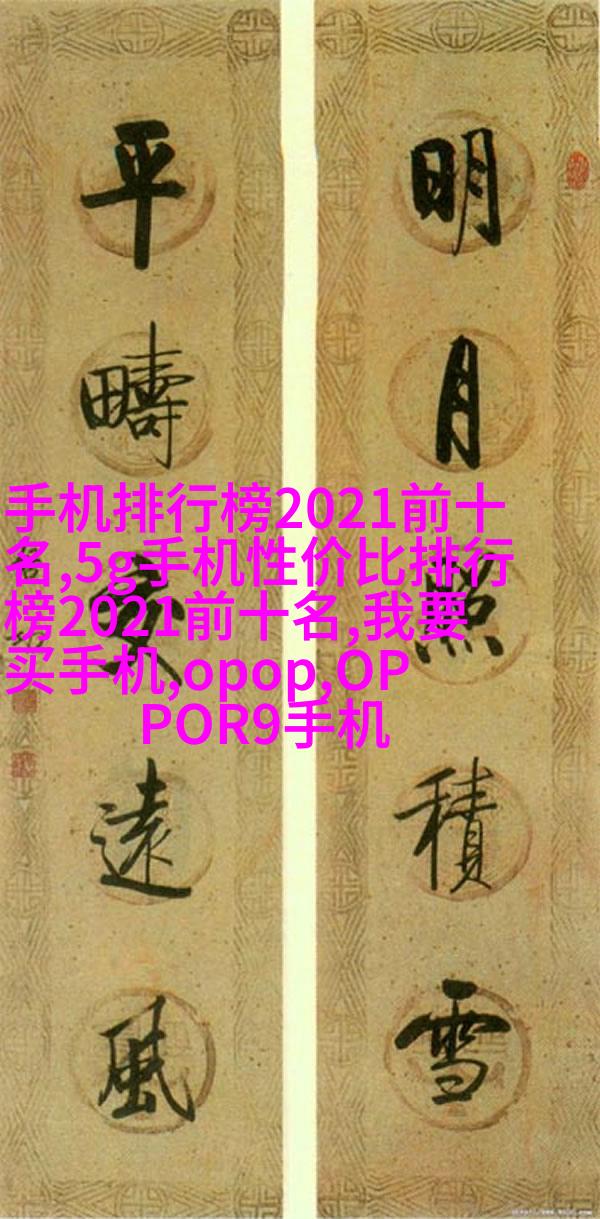 明月照積雪
平疇交遠風
手机排行榜2021前十
名,5g手机性价比排行
榜2021前十名,我要
买手机,opop,OP
POR9手机